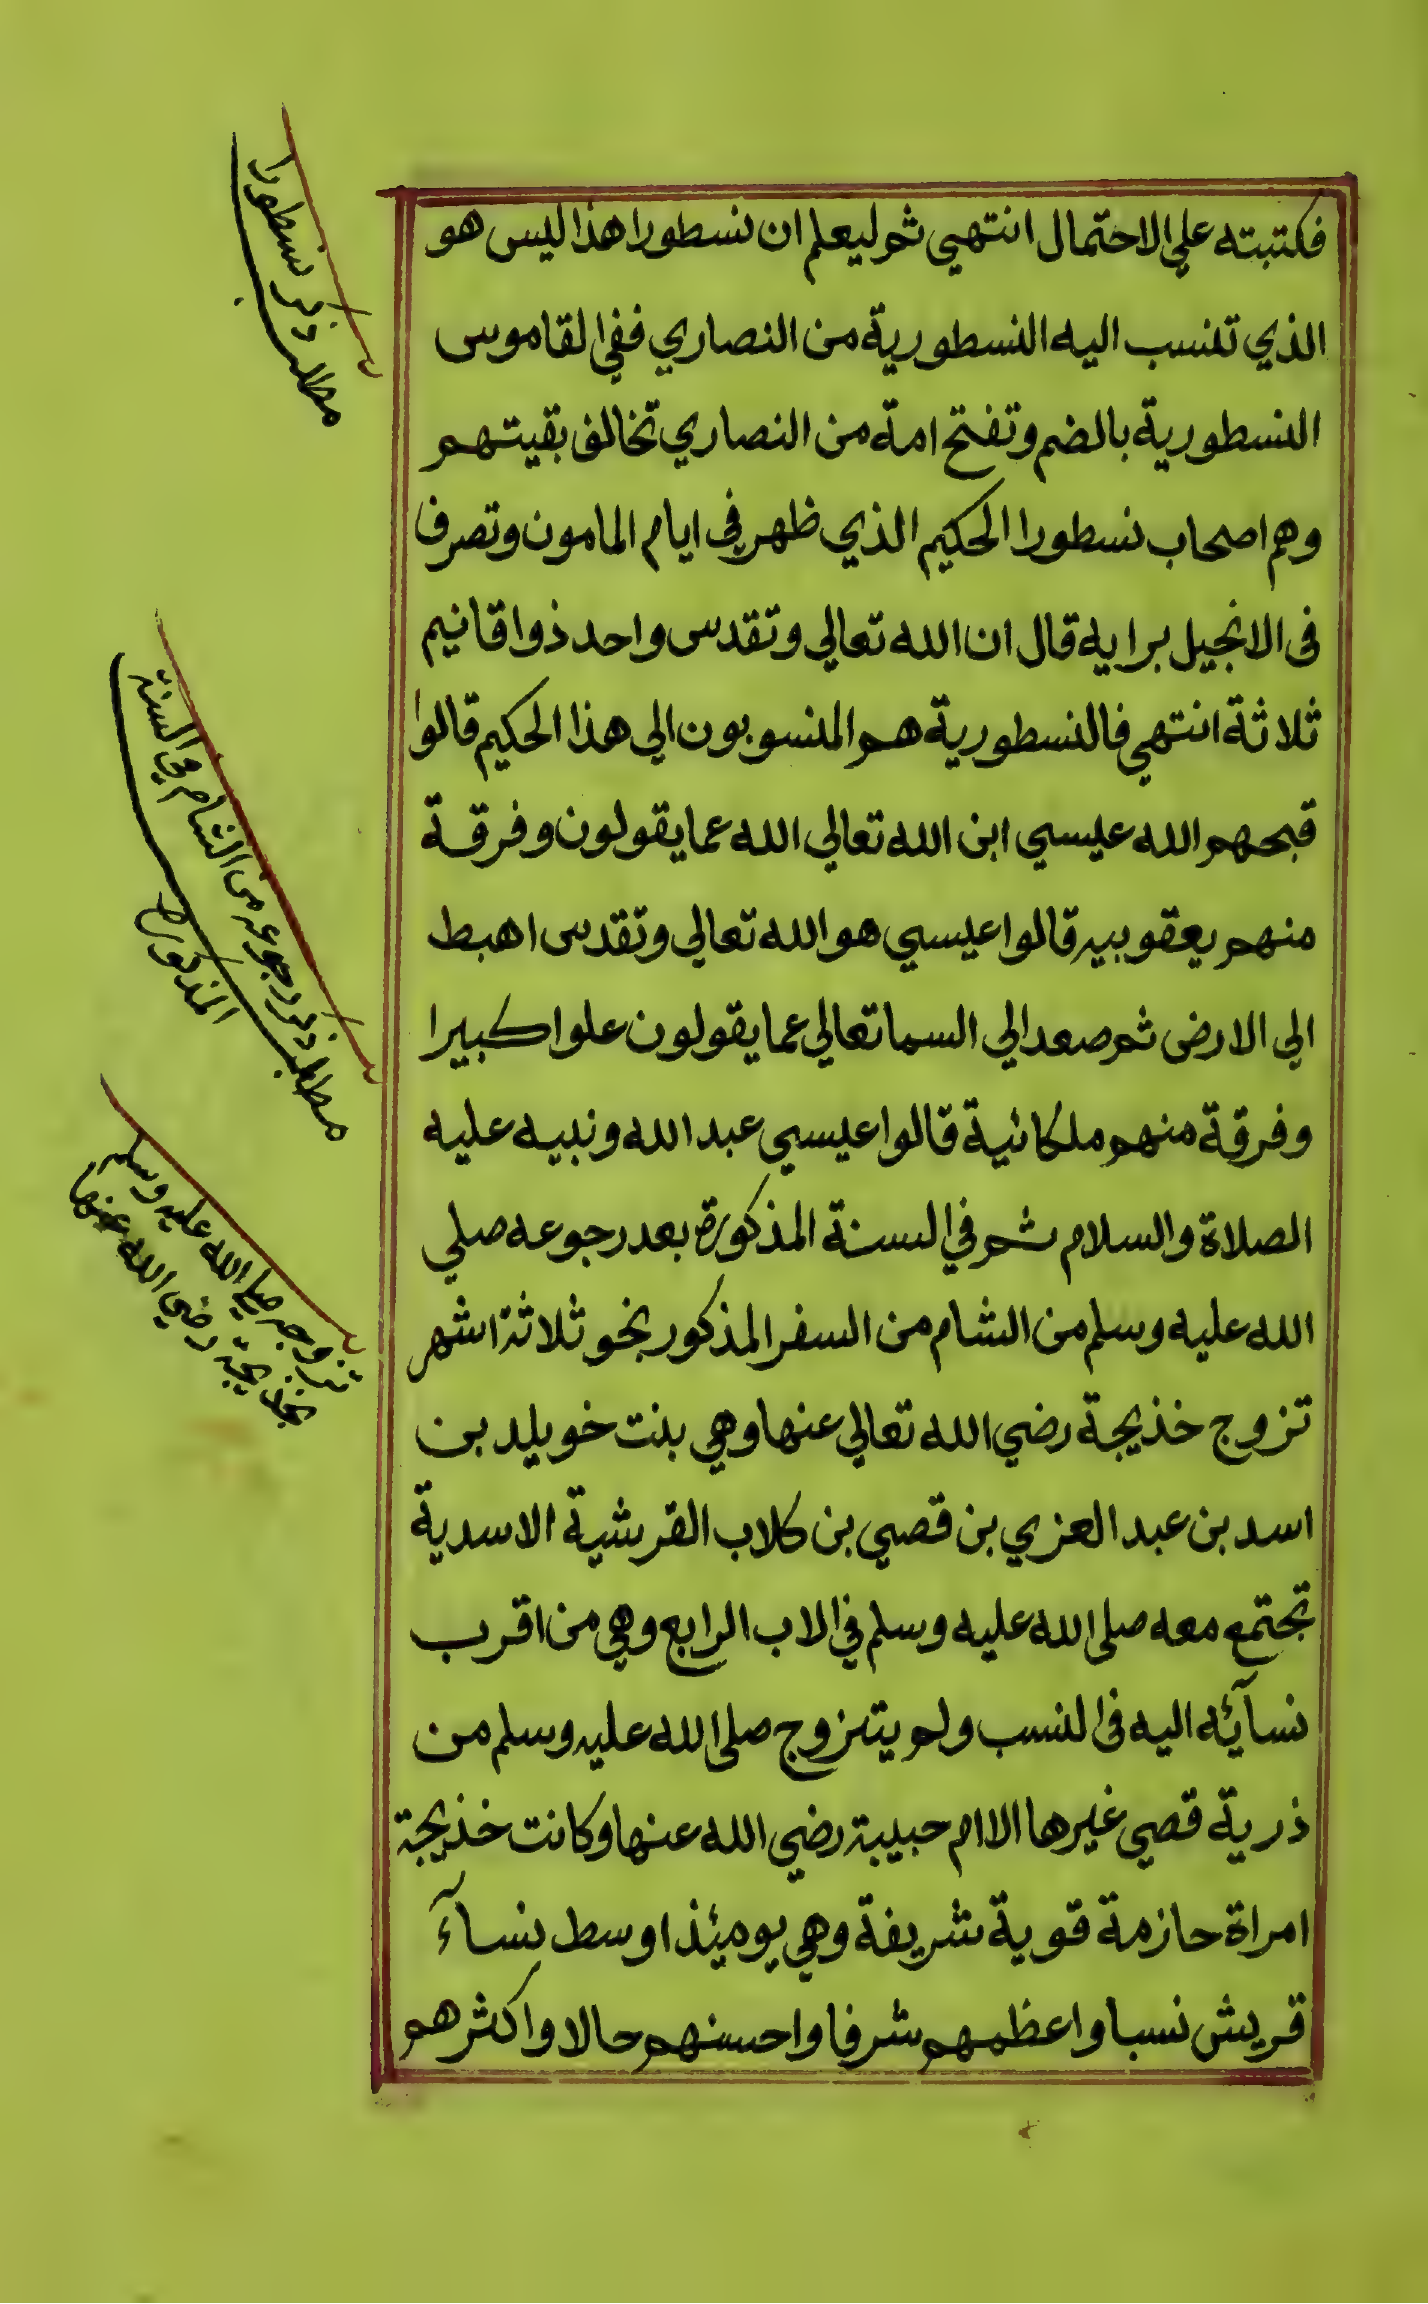 فكتبته علي الاحتمال انتهي ثم ليعلم ان نسطورا هذا ليس هو
الذي تنسب اليه النسطورية من النصاري ففي القاموس
النسطورية بالضم وتفتح امة من النصاري تخالف بقيتهم
وهم اصحاب نسطورا الحكيم الذي ظهر في ايام المامون وتصرف
في الانجيل برايه قال ان الله تعالي وتقدس واحد ذوا قانيم
ثلاثة انتهي فالنسطورية هم المنسوبون الي هذا الحكيم قالوا
قبحهم الله عليسي ابن الله تعالي الله عما يقولون وفرقة
منهم يعقوبيه قالوا عيسي هو الله تعالي وتقدس اهبط
الي الارض ثم صعد الي السما تعالي عما يقولون علوا كبيرا
وفرقة منهم ملكائية قالوا عيسي عبد الله ونبيه عليه
الصلاة والسلام ثم في السنة المذكورة بعد رجوعه صلي
الله عليه وسلم من الشام من السفر المذكور بنحو ثلاثة اشهر
تزوج خذيجة رضي الله تعالي عنها وهي بنت خويلد بن
اسد بن عبد العزي بن قصي بن كلاب القرشية الاسدية
تجتمع معه صلي الله عليه وسلم في الاب الرابع وهي من اقرب
نسآئه اليه في النسب ولم يتزوج صلي الله عليه وسلم من
ذرية قصي غيرها الا ام حبيبة رضي الله عنها وكانت خذيجة
امراة حازمة قوية شريفة وهي يومئذ اوسط نسآء
قريش نسبا واعظمهم شرفا واحسنهم حالا واكثرهم
مطلب ذكر نسطورا
مطلب ذكر رجوعه من الشام في السنة
المذكورة
تزوجه صلي الله عليه وسلم
بخذيجة رضي الله عنها